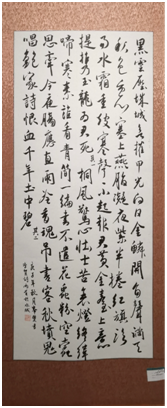 黑雲壓城城欲摧甲光向日金鱗開角聲滿天
秋色里塞上燕脂凝夜紫半捲紅旗臨
易水霜重鼓寒聲不起報君黃金臺上意
提攜玉龍為君死其一桐風驚心壯士苦衰燈絡緯
啼寒素誰看青簡一編書不遣花蟲粉空蠹
思牽今夜腸應直雨冷香魂吊書客秋墳鬼
唱鮑家詩恨血千年土中碧其二